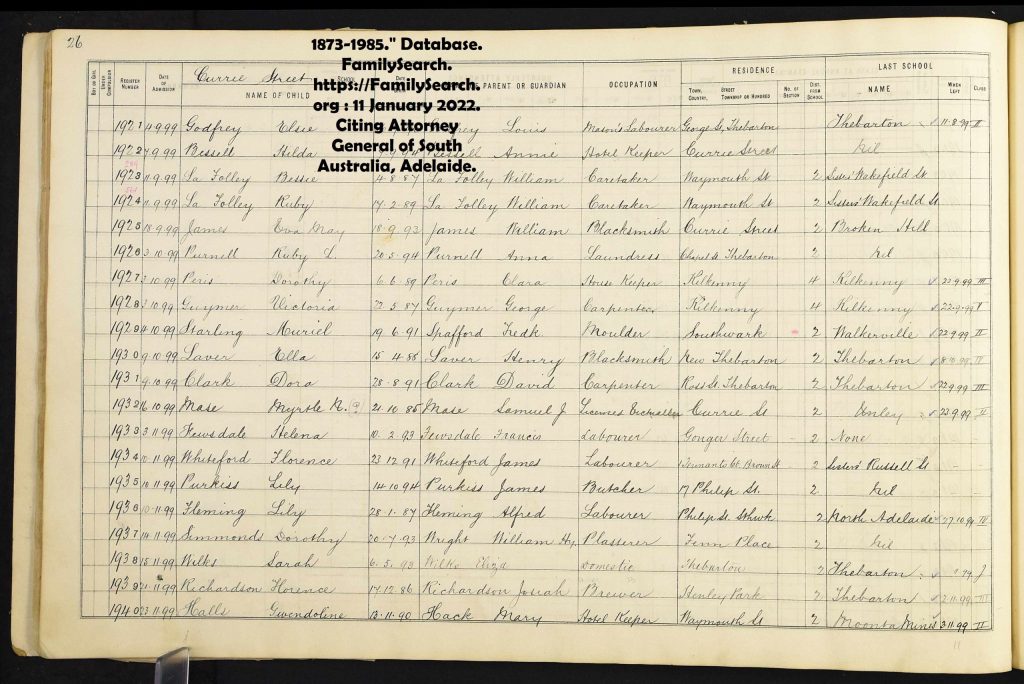 26
1873-1985." Database.
FamilySearch.
https://FamilySearch.
org : 11 January 2022.
Citing Attorney
General of South
Australia, Adelaide.
Currie Street SCHOOL
BOY OR GIRL UNDER COMPULSION REGISTER NUMBER DATE OF ADMISSION NAME OF CHILD PARENT OR GUARDIAN OCCUPATION RESIDENCE LAST SCHOOL
TOWN, COUNTRY, STREET TOWNSHIP OR HUNDRED No. of SECTION DIST. FROM SCHOOL NAME WHEN LEFT CLASS
1921 4.9.99 Godfrey Elsie Louis Mason's Labourer George St, Thebarton Thebarton 11.8.99 II
1922 7.9.99 Bessell Hilda 9.94 Bessell Annie Hotel Keeper Currie Street Nil
1923 11.9.99 La Folley Bessie 4.8.87 La Folley William Caretaker Waymouth St 2 Sisters Wakefield St
1924 11.9.99 La Folley Ruby 17.2.89 La Folley William Caretaker Waymouth St 2 Sisters' Wakefield St
1925 18.9.99 James Eva May 18.9.93 James William Blacksmith Currie Street 2 Broken Hill
1926 3.10.99 Purnell Ruby L. 20.5.94 Purnell Anna Laundress Chapel St Thebarton 2 Nil
1927 3.10.99 Peris Dorothy 6.6.89 Peris Clara House Keeper Kilkenny 4 Kilkenny 22.9.99 III
1928 3.10.99 Guymer Victoria 22.5.87 Guymer George Carpenter Kilkenny 4 Kilkenny 22.9.99 V
1929 4.10.99 Starling Muriel 19.6.91 Spafford Fredk Moulder Southwark 2 Walkerville 22.9.99 II
1930 9.10.99 Laver Ella 15.4.88 Laver Henry Blacksmith New Thebarton 2 Thebarton 8.10.99 IV
1931 9.10.99 Clark Dora 28.8.91 Clark David Carpenter Ross St. Thebarton 2 Thebarton 22.9.99 III
1932 16.10.99 Mase Myrtle R. (?) 21.10.85 Mase Samuel J Currie St 2 Unley 23.9.99 V
1933 3.11.99 Fewsdale Helena 10.2.93 Fewsdale Francis Labourer Gouger Street - 2 None
1934 10.11.99 Whiteford Florence 23.12.91 Whiteford James Labourer 2 Sisters' Russell St
1935 10.11.99 Purkiss Lily 14.10.94 Purkiss James Butcher 17 Philip St. 2 Nil
1936 10.11.99 Fleming Lily 28.1.87 Fleming Alfred Labourer Philip St. Sthwk 2 North Adelaide 27.10.99 IV
1937 14.11.99 Simmonds Dorothy 20.7.93 Wright William Hy. Plasterer Fenn Place 2 Nil
1938 15.11.99 Wilks Sarah 6.5.93 Wilks Eliza Domestic Thebarton 2 Thebarton 99 J
1939 21.11.99 Richardson Florence 17.12.86 Richardson Josiah Brewer Henley Park 2 Thebarton 2.11.99 III
1940 23.11.99 Halls Gwendoline 13.11.90 Hack Mary Hotel Keeper Waymouth St 2 Moonta Mines 3.11.99 II